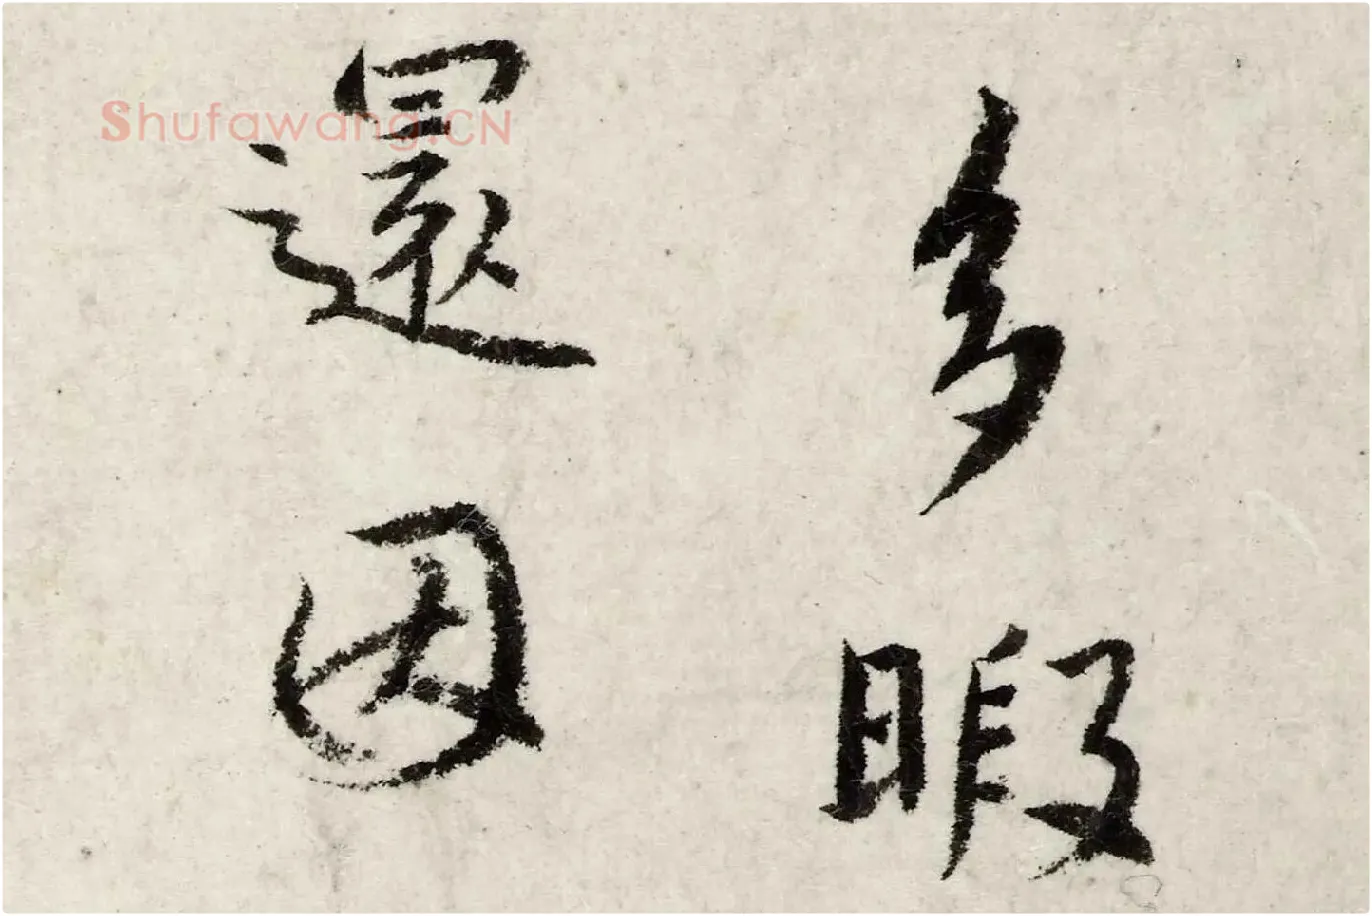 多暇
還因
Shufawang.CN